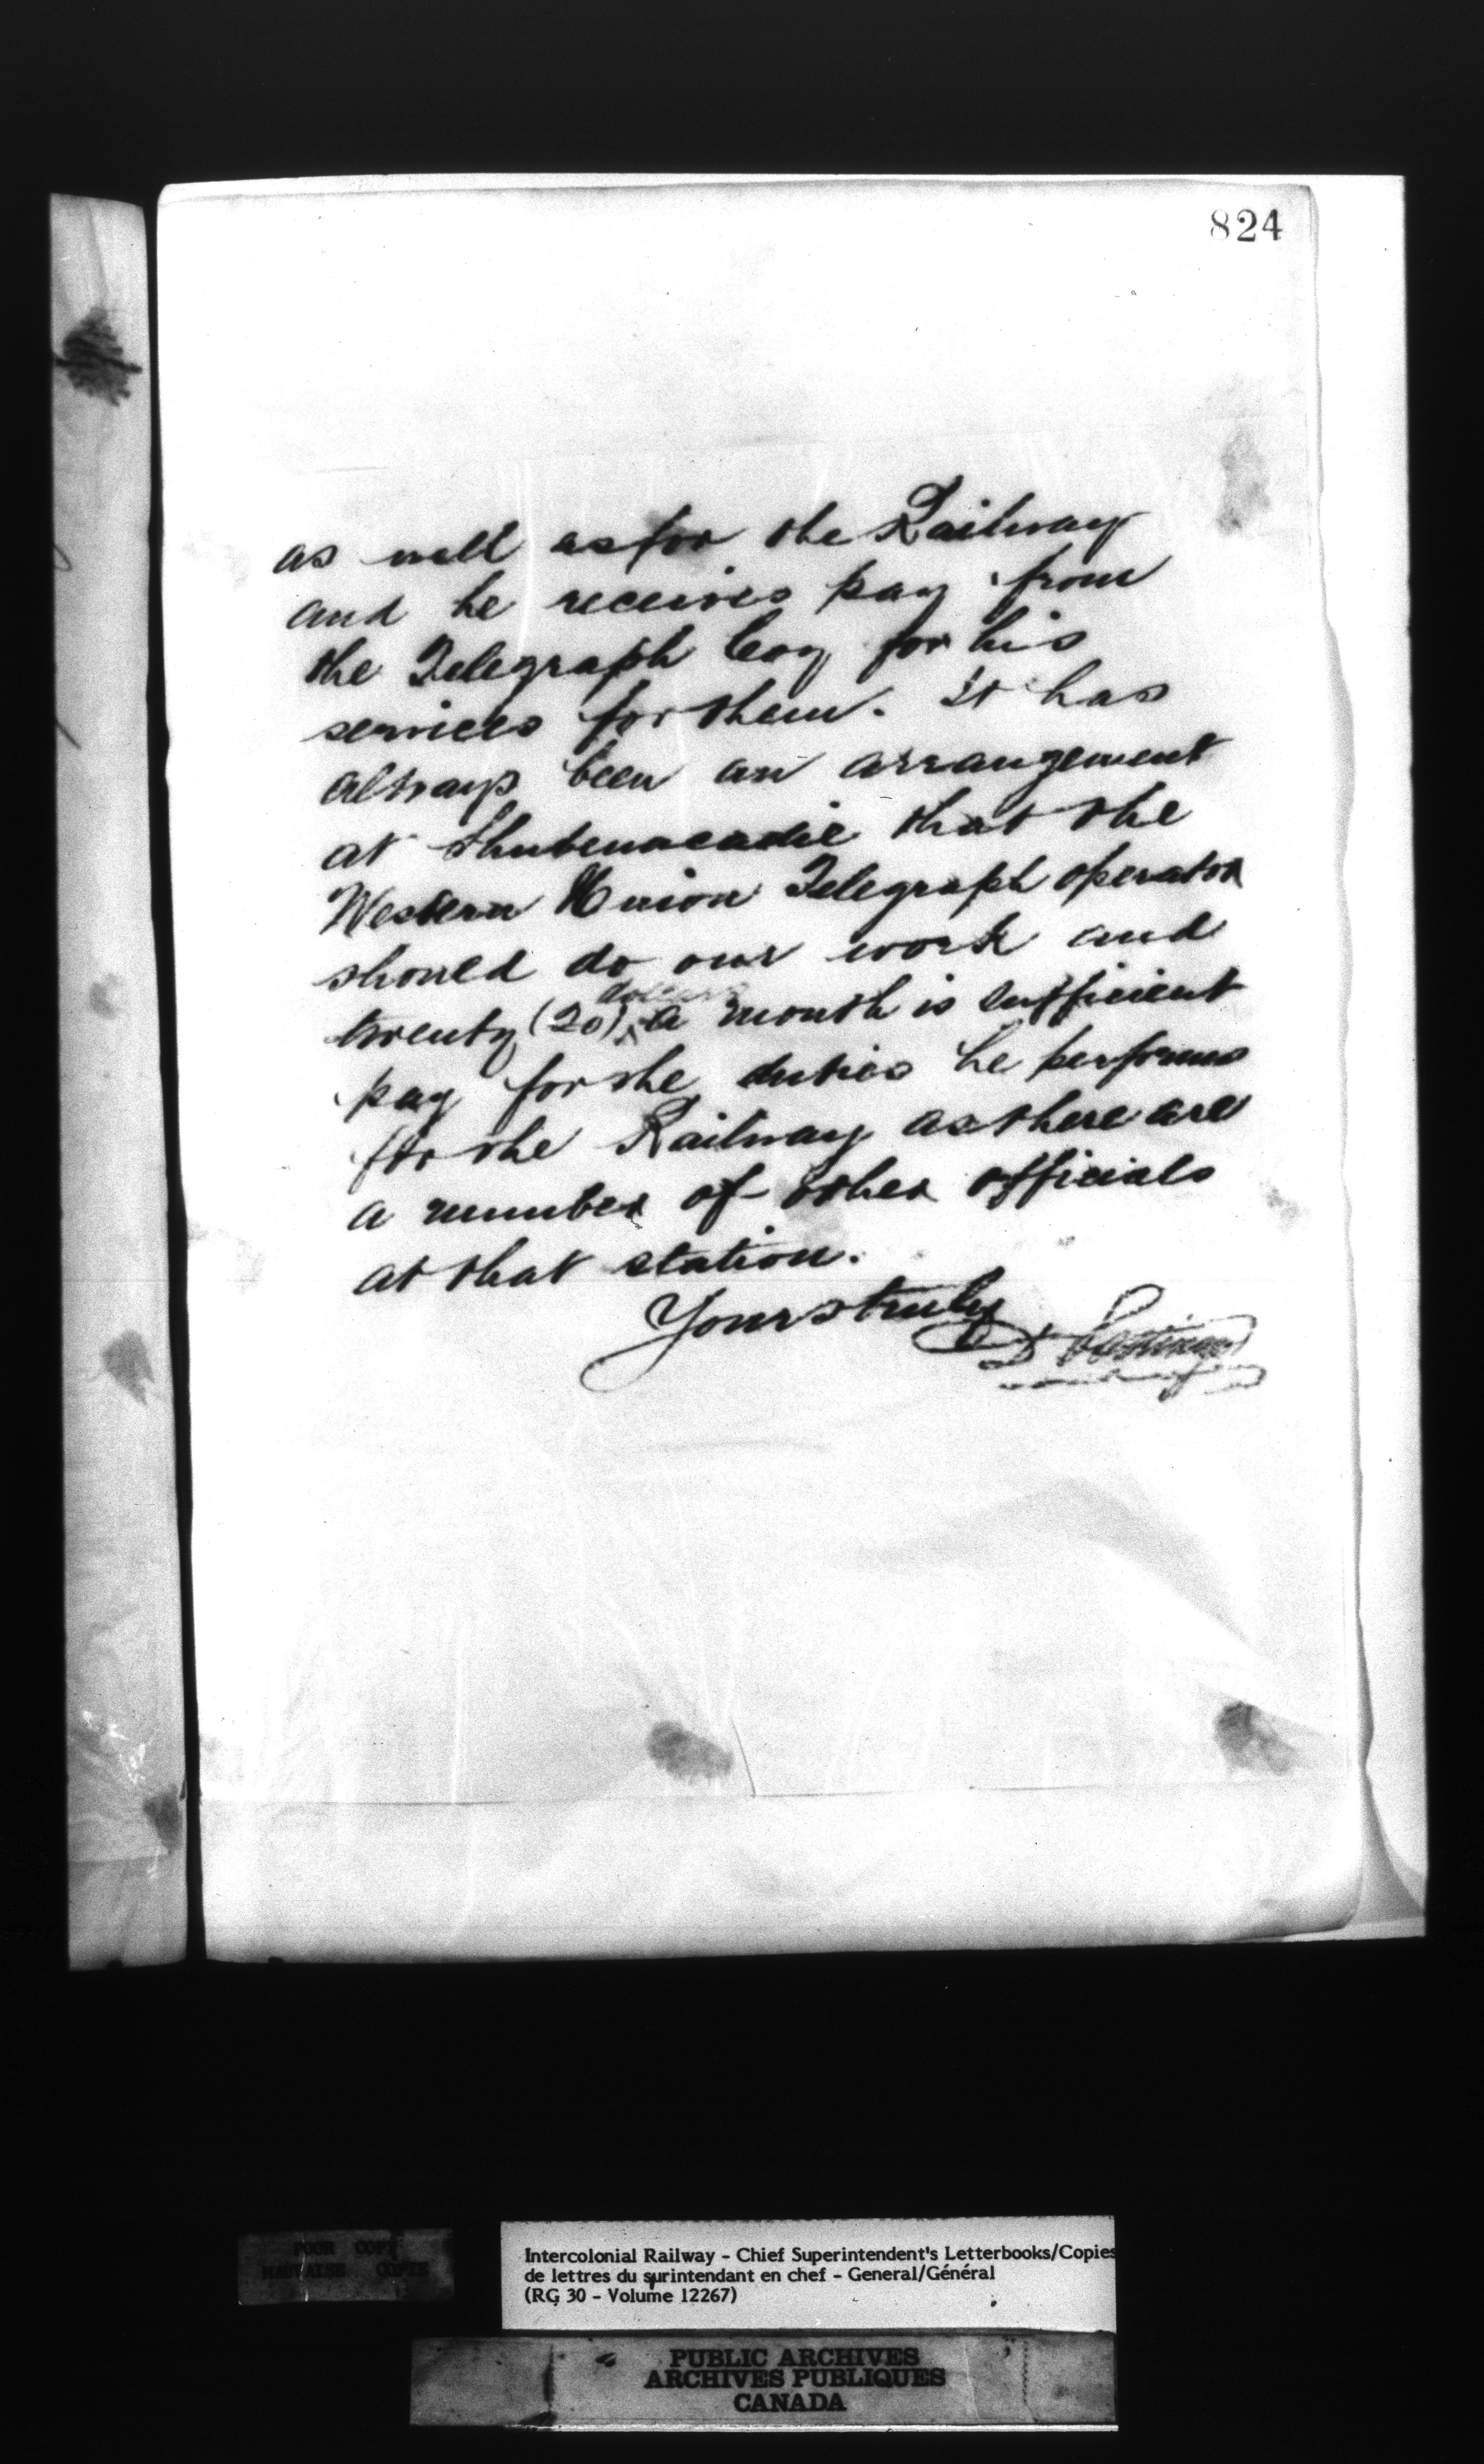 824
as well as for the Railway
and he receives pay from
the Telegraph Coy for his
services for them. It has
always been an arrangement
at Shubenacadie that the
Western Union Telegraph operator
should do our work and
dollars
twenty (20) a month is sufficient
pay for the duties he performs
for the Railway as there are
a number of other officials
at that station.
Yours truly
D Pottinger
POOR COPY
MAUVAISE COPIE
Intercolonial Railway - Chief Superintendent's Letterbooks/Copies
de lettres du surintendant en chef - General/Général
(RG 30 - Volume 12267)
PUBLIC ARCHIVES
ARCHIVES PUBLIQUES
CANADA